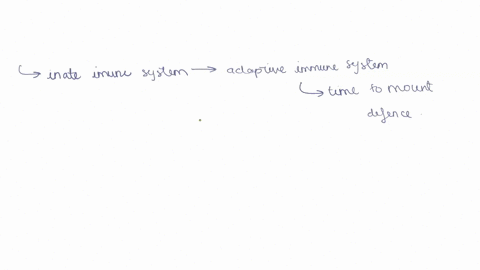 inate imune system → adaptive immune system
↳ time to mount
defence.